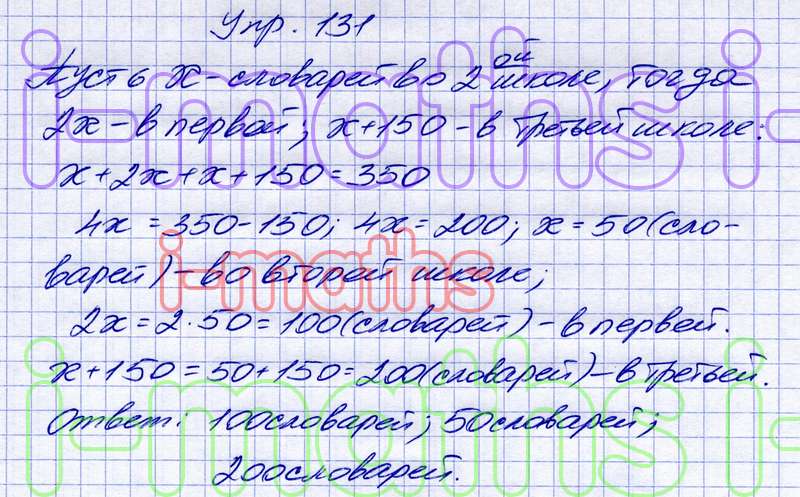 Упр. 131
Пусть x - словарей во 2ой школе, тогда
2x - в первой; x+150 - в третьей школе:
x+2x+x+150=350
4x=350-150; 4x=200; x=50(сло-
варей) - во второй школе;
2x=2·50=100(словарей) - в первей.
x+150=50+150=200(словарей) - в третьей.
Ответ: 100словарей; 50словарей;
200словарей.
i-maths i
i-maths
i-maths i